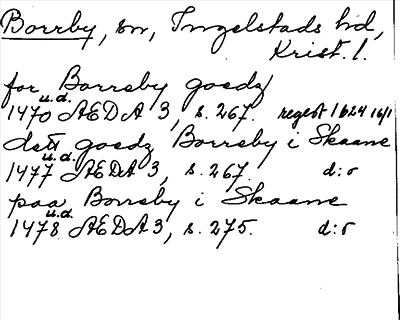 Borrby, sn, Ingelstads hd,
Krist. l.
for Borreby goedz
1470 u.d. ÆDA 3, s. 267. regest 1624 16/1
dett goedz Borreby i Skaane
1477 u.d. ÆDA 3, s. 267. d:o
paa Borreby i Skaane
1478 u.d. ÆDA 3, s. 275. d:o